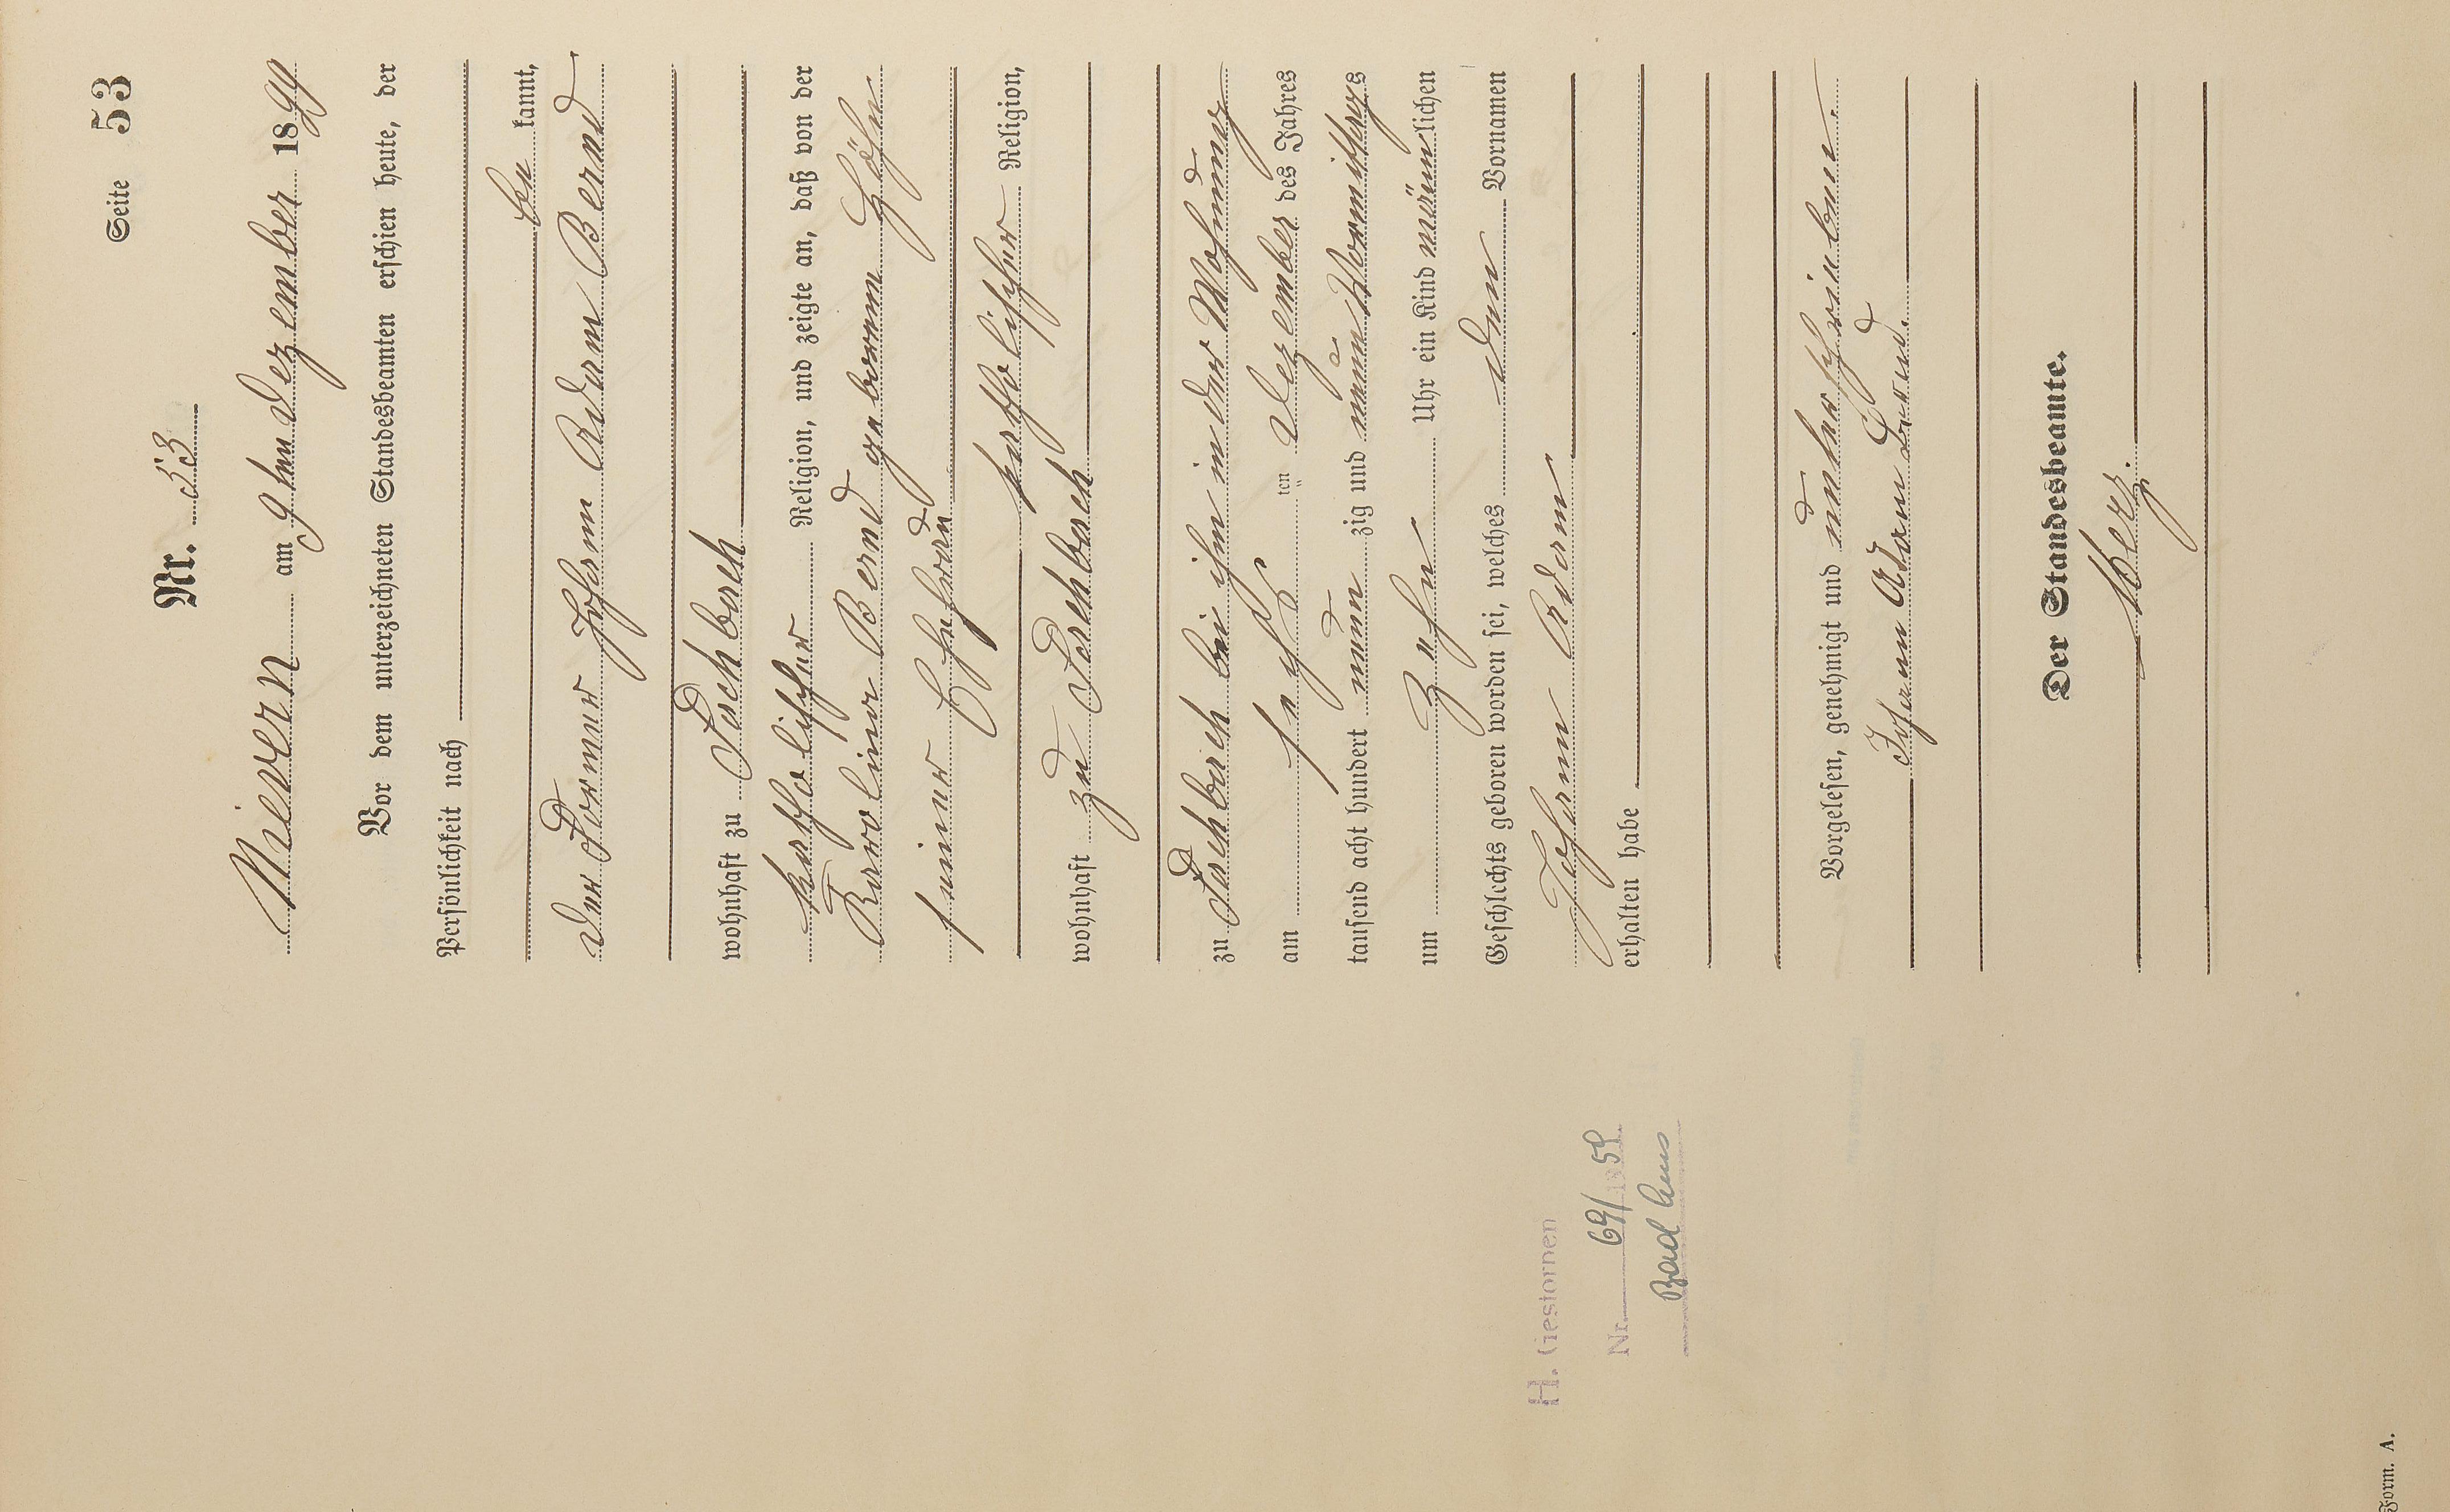 Seite 53
Nr. 53
Nievern am 9ten Dezember 1899
Vor dem unterzeichneten Standesbeamten erschien heute, der
Persönlichkeit nach
be kannt,
der Former Johann Adam Bernd
wohnhaft zu Fachbach
katholischer Religion, und zeigte an, daß von der
Karolina Bernd geborenen Höhn
seiner Ehefrau
katholischer Religion,
wohnhaft zu Fachbach
zu Fachbach bei ihm in der Wohnung
am sechs ten Dezember des Jahres
tausend acht hundert neun zig und neun Vormittags
um zehn Uhr ein Kind männlichen
Geschlechts geboren worden sei, welches den Vornamen
Johann Adam
erhalten habe
Vorgelesen, genehmigt und unterschrieben.
Johann Adam Bernd.
Der Standesbeamte.
H. Gestorben
Nr. 69/1959
Bad Ems
Form. A.